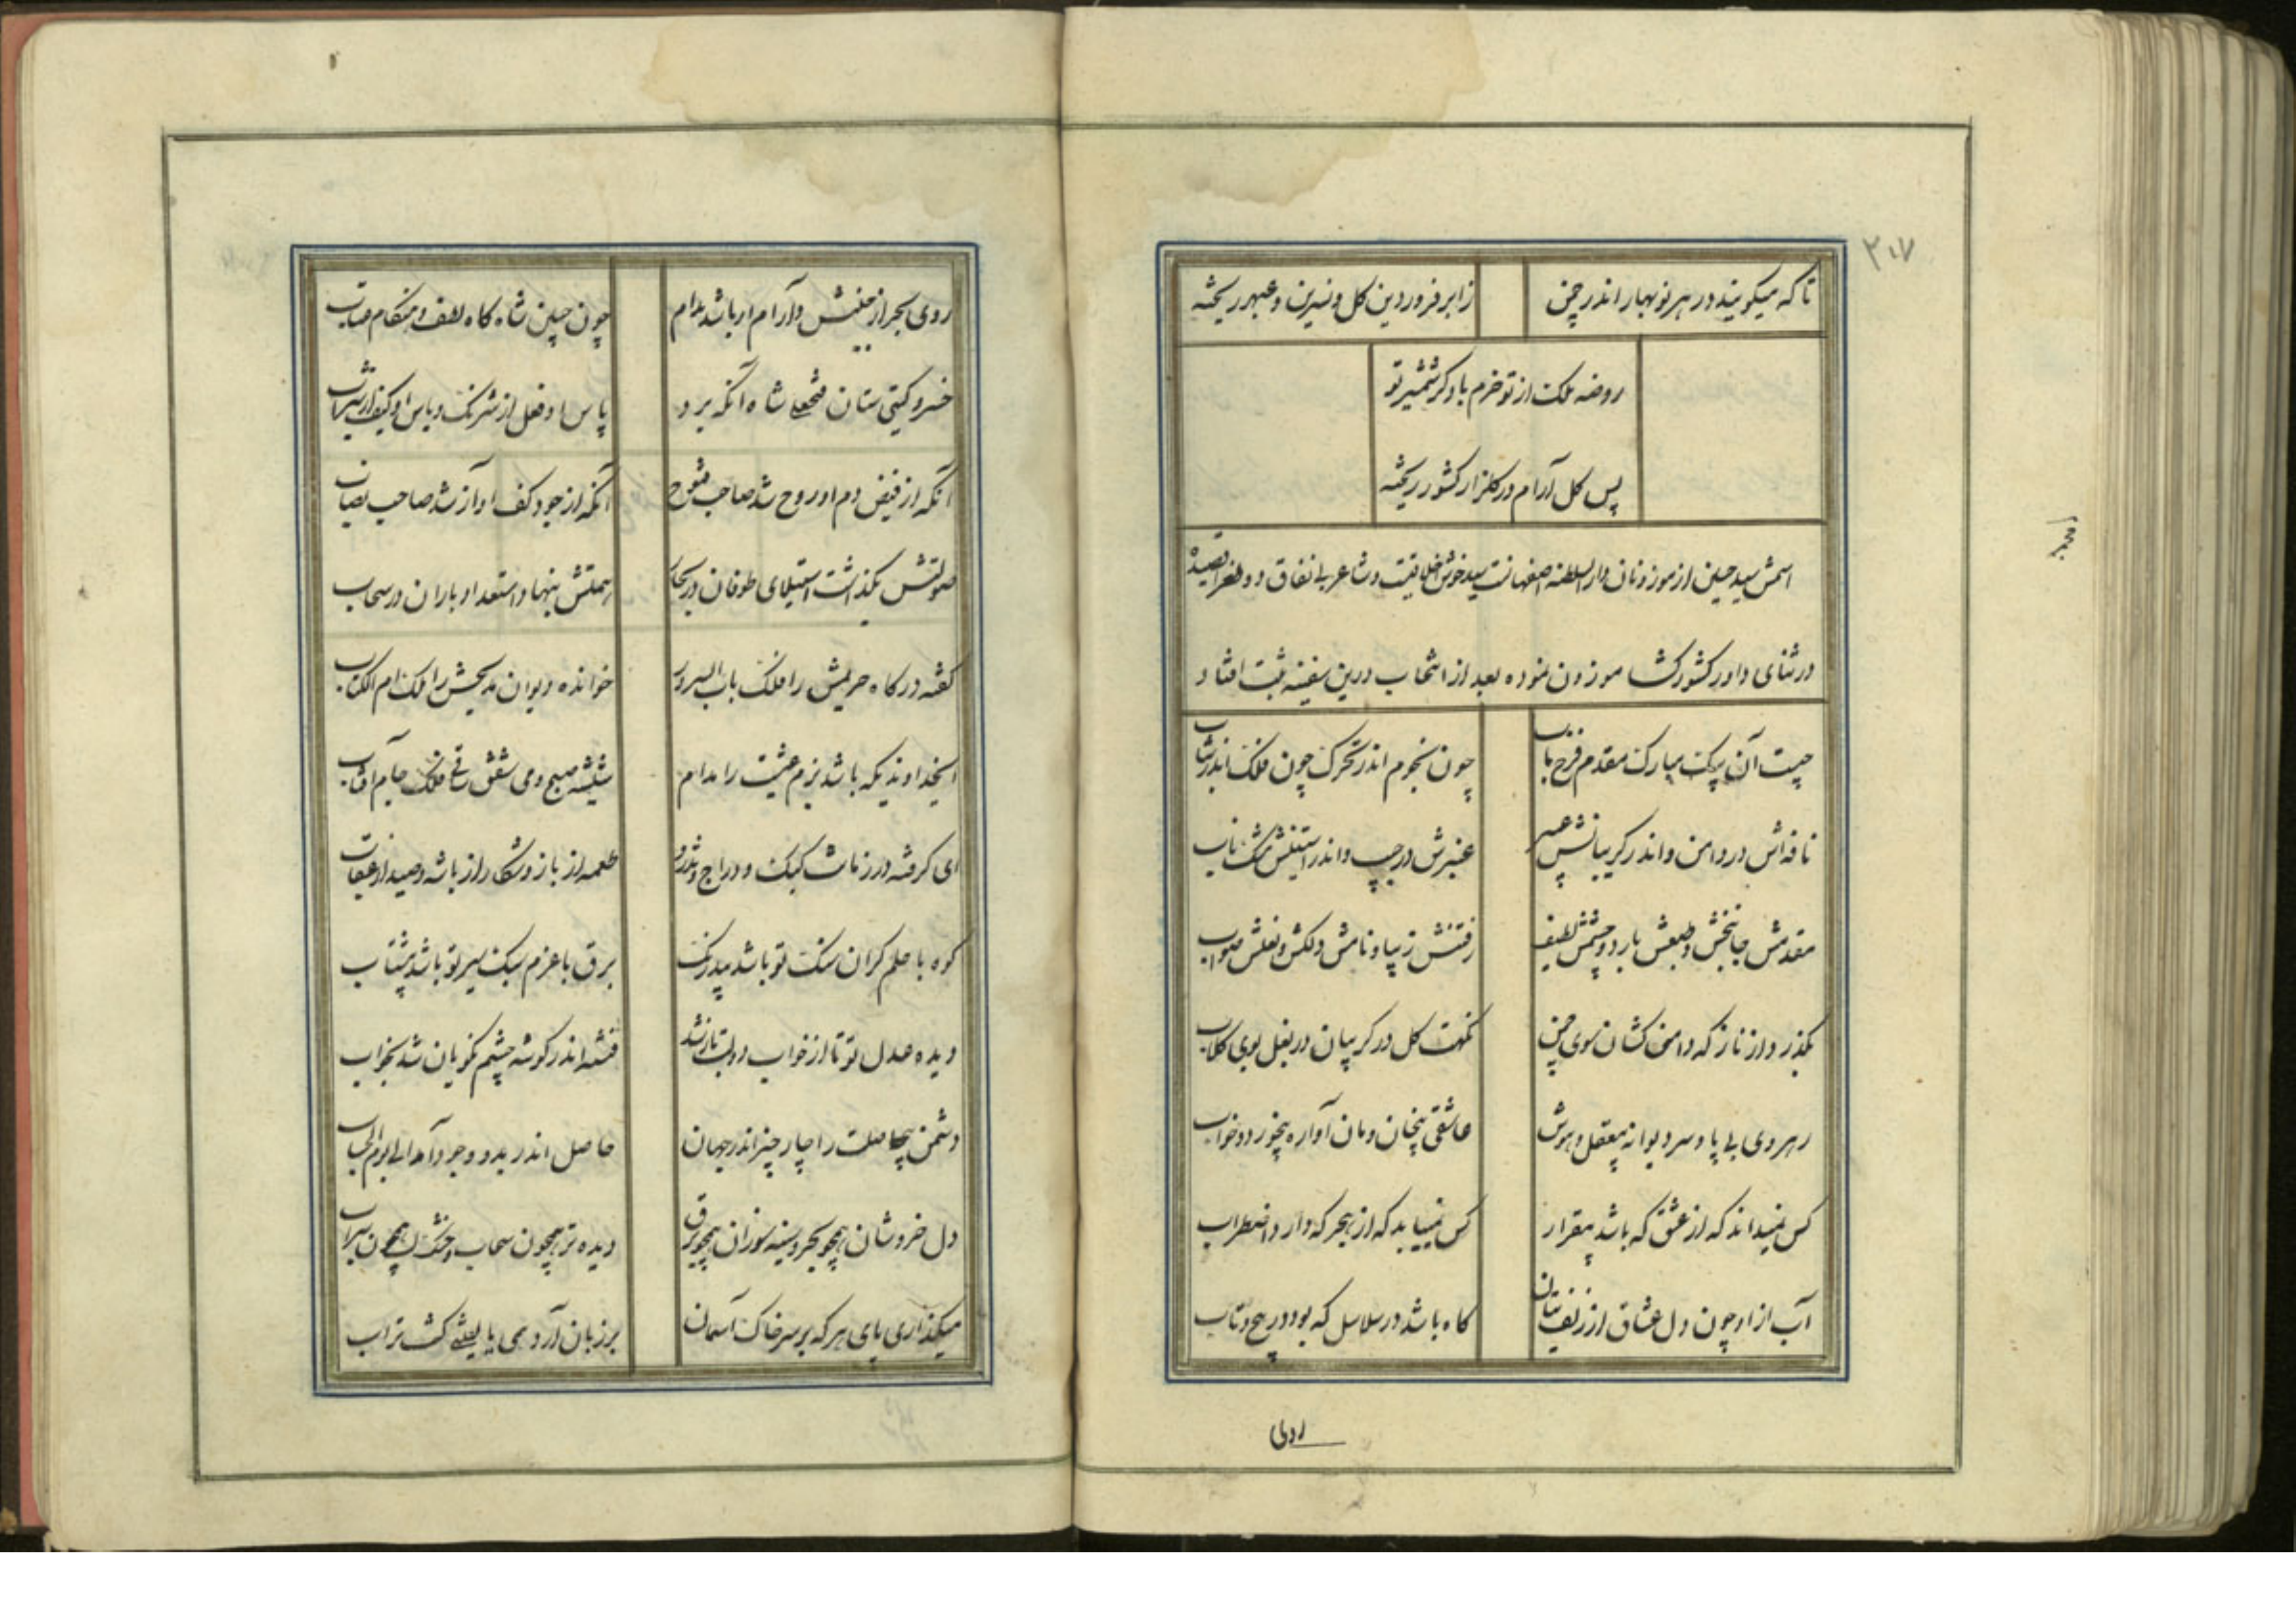 ۳۰۷
تا که میکویند در هر نوبهار اندر چمن
زابر فروردین کل و نسرین و عبهر ریخته
روضه ملک از تو خرم باد کز شمشیر تو
پس کل آرام در کلزار کشور ریخته
اسمش سید حسین از موزونان دار السلطنه اصفهانست سید خوش اخلاقیست و شاعر با نفاق دو طغرا قصیده
در ثنای داور کشورکشا موزون نموده بعد از انتخاب درین سفینه ثبت افتاد
چیست آن پیک مبارک مقدم فرخ باب
چون نجوم اندر تحرک چون فلک اندر شتاب
نافه اش در دامن و اندر کریبانش عبیر
عنبرش در جیب و اندر آستینش مشک ناب
مقدمش جانبخش و طبعش بارد و جسمش لطیف
رفتنش زیبا و نامش دلکش و فعلش صواب
بگذرد از ناز که دامن کشان سوی چمن
نکهت کل در کریبان در بغل بوی کلاب
رهروی بی پا و سر دیوانه بیعقل و هوش
عاشقی بیخان و مان آواره بیخورد و خواب
کس نمیداند که از عشق که باشد بیقرار
کس نمییابد که از هجر که دارد اضطراب
آب از او چون دل عشاق از زلف بتان
کاه باشد در سلاسل که بود در پیچ و تاب
روی
روی بحر از جنبش و آرام ار باشد مدام
چون جبین شاه کاه لطف و هنکام عتاب
خسرو کیتی ستان فتحعلی شاه آنکه برد
آنکه از فیض دم او روح شد صاحب فتوح
آنکه از جود کف او آز شد صاحب نصاب
صولتش بگذاشت استیلای طوفان در بحار
همتش بنهاد استعداد باران در سحاب
کفته درکاه حریمش را فلک باب السرور
خوانده دیوان مدیحش را ملک ام الکتاب
ایخداوندیکه باشد بزم عیشت را مدام
شیشه صبح و می شفق ساقی فلک جام آفتاب
ای کرفته در زمانت کبک و دراج و تذرو
طعمه از باز و شکار از باشه و صید از عقاب
کوه با حلم کران سنک تو باشد بیدرنک
برق با عزم سبک سیر تو باشد بیشتاب
دیده عدل تو تا از خواب دولت باز شد
فتنه اندر کوشه چشم نکویان شد بخواب
دشمن بیحاصلت را چار چیز اندر جهان
حاصل اندر بدو وجود آمد الی یوم الحساب
دل خروشان همچو بحر و سینه سوزان همچو برق
دیده تر همچون سحاب و خشک لب همچون سراب
میکذاری پای هر که بر سر خاک آسمان
بر زبان آرد همی یا لیتنی کنت تراب